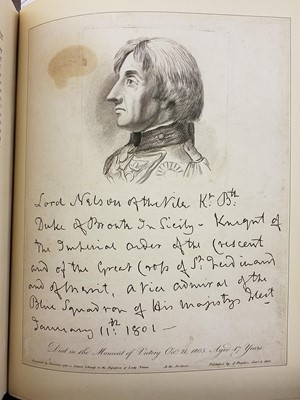 Lord Nelson of the Nile Kt. Bth.
Duke of Bronte In Sicily - Knight of
The Imperial order of the Crescent
and of the Great Cross of St. Ferdinand
and of Merit, a Vice admiral of the
Blue Squadron of His Majestys Fleet
January 11th 1801 —
Died in the Moment of Victory Oct. 21, 1805. Aged 47 Years.